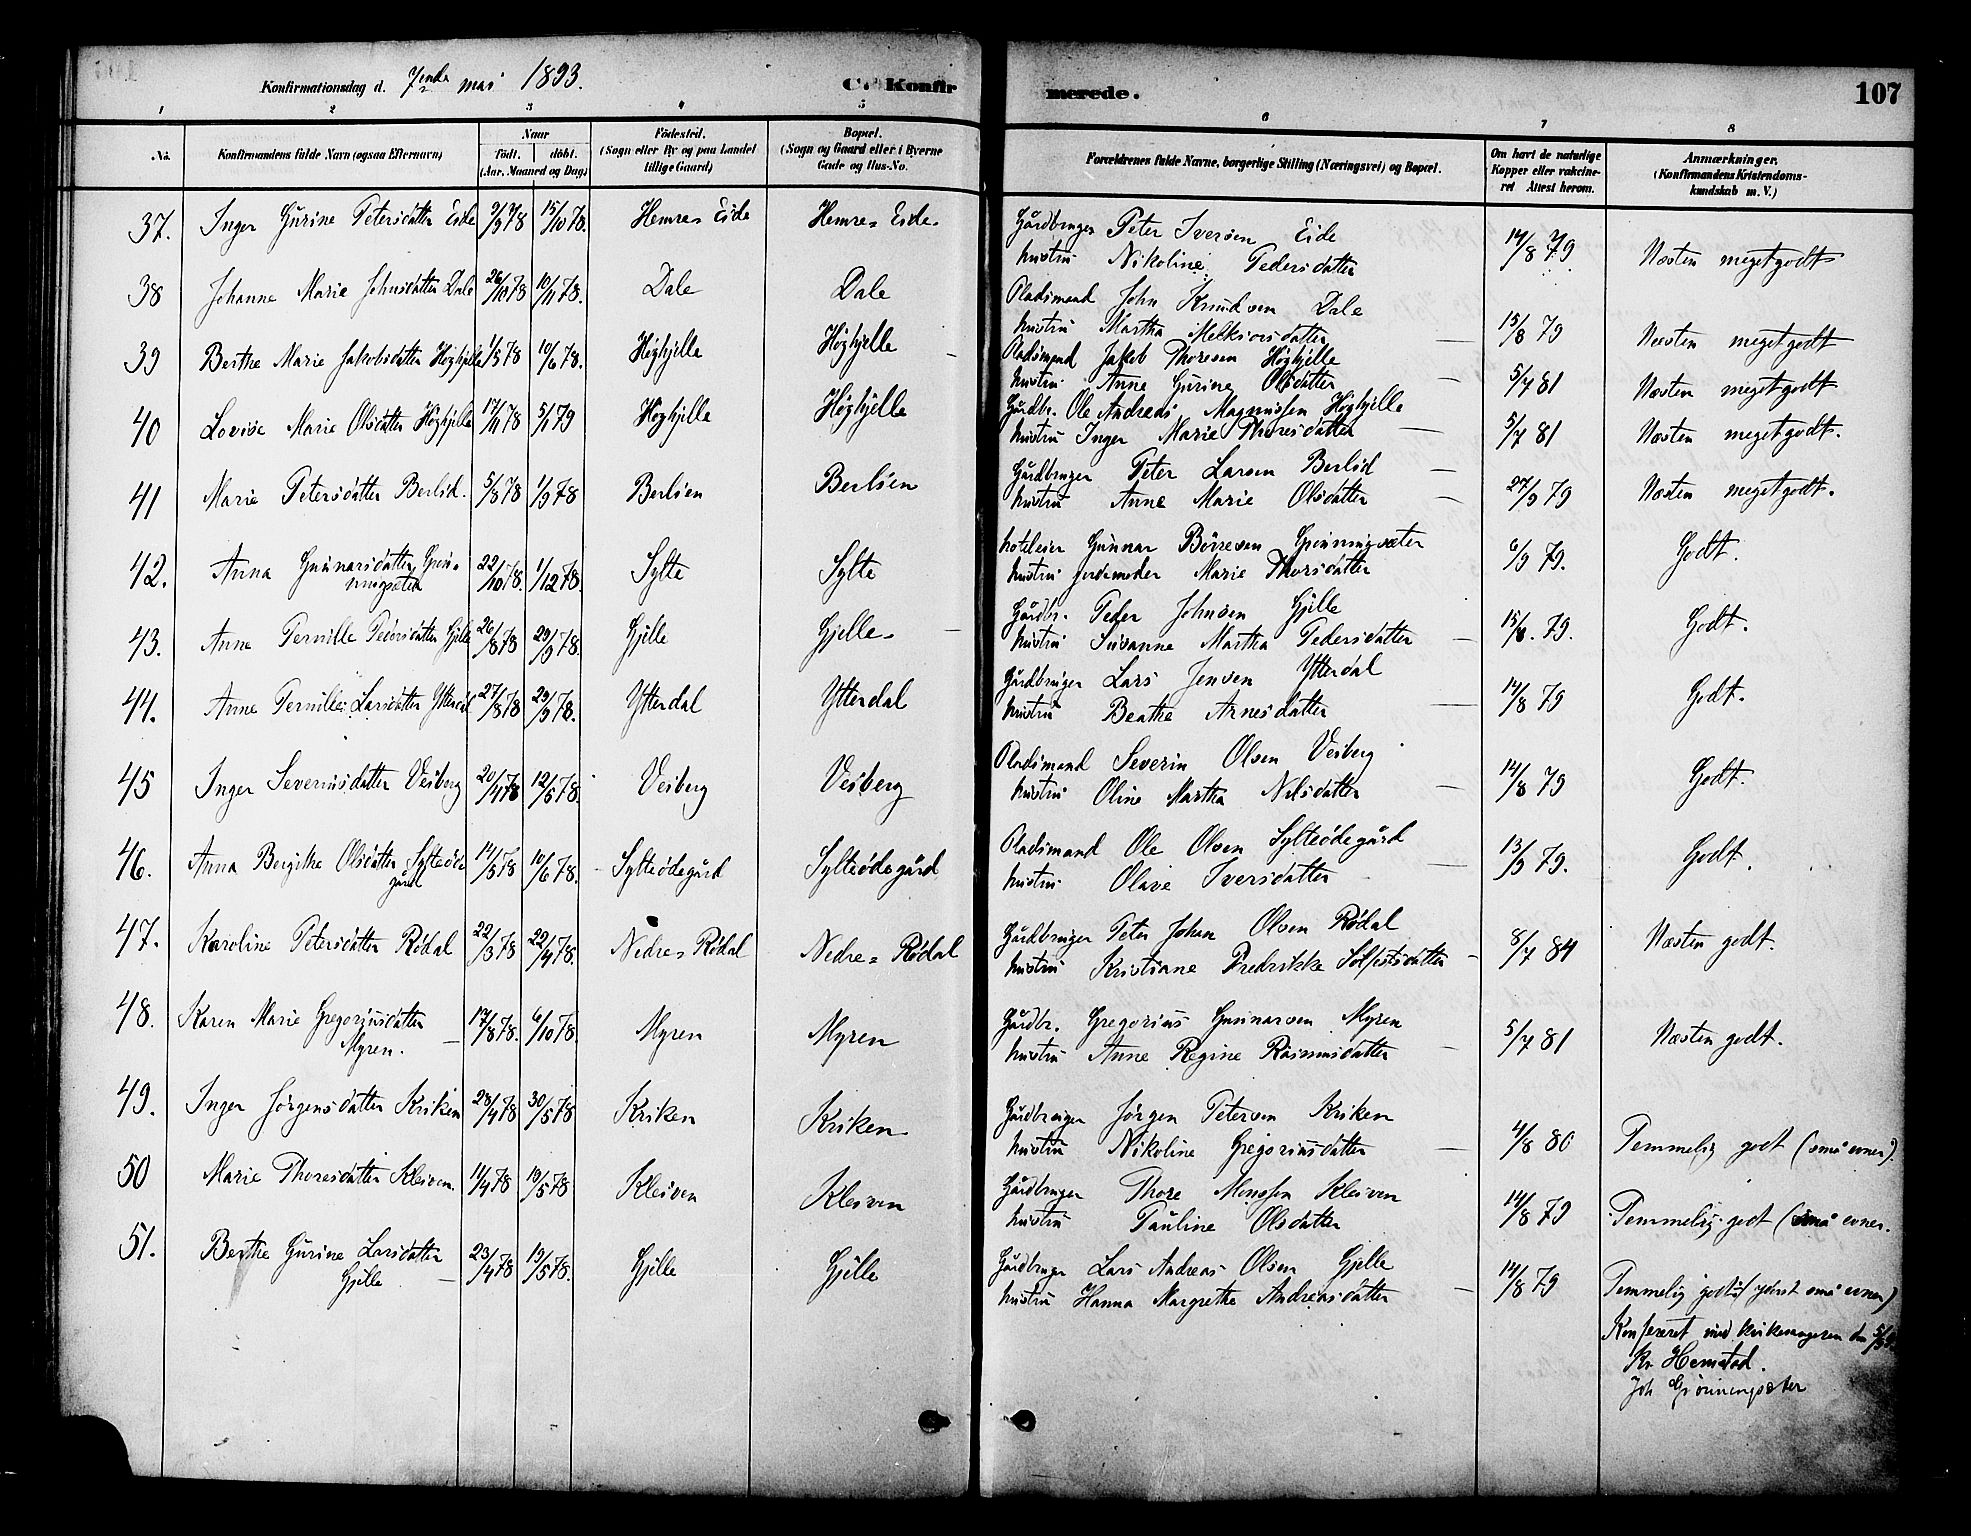 Konfirmationsdag d. 7nde mai 1893.
C. Konfir
merede.
107
1 2 3 4 5 6 7 8
No.
Konfirmandens fulde Navn (ogsaa Efternavn)
Naar
Födt. döbt.
(Aar, Maaned og Dag)
Födested.
(Sogn eller By og paa Landet tillige Gaard)
Bopæl.
(Sogn og Gaard eller i Byerne Gade og Hus-No.
Forældrenes fulde Navne, borgerlige Stilling (Næringsvei) og Bopæl.
Om havt de naturlige Kopper eller vakcineret Attest herom.
Anmærkninger.
(Konfirmandens Kristendomskundskab m. V.)
37. Inger Gurine Petersdatter Eide 9/9 78 15/10 78. Hemre= Eide Hemre= Eide. Gårdbruger Peter Iversen Eide 14/8 79 Næsten megetgodt
hustru Nikoline Pedersdatter
38 Johanne Marie Johnsdatter Dale 26/10 78 10/11 78. Dale Dale Pladsmand John Knudsen Dale
hustru Martha Melkiorsdatter 15/8 79 Næsten megetgodt
39 Berthe Marie Jakobsdatter Høghjelle 1/5 78 10/6 78. Høghjelle Høghjelle Pladsmand Jakob Thoresen Høghjelle
hustru Anne Gurine Olsdatter 5/7 81 Næsten megetgodt
40 Lovise Marie Olsdatter Høghjelle 17/11 78 5/1 79 Høghjelle Høghjelle Gårdbr. Ole Andreas Magnussen Høghjelle
hustru Inger Marie Thoresdatter 5/7 81 Næsten megetgodt.
41 Marie Petersdatter Berlid. 5/8 78 1/9 78 Berlien Berlien Gårdbruger Peter Larsen Berlid
hustru Anne Marie Olsdatter 27/9 79 Næsten megetgodt.
42. Anna Gunnarsdatter Grønningsæter 22/10 78. 1/12 78. Sylte Sylte hoteleier Gunnar Börresen Grønningsæter 6/9 79. Godt.
hustru jordemoder Marie Thorsdatter
43. Anne Pernille Pedersdatter Gjelle 26/8 78 29/9 78. Gjelle Gjelle= Gårdbr. Peder Johnsen Gjelle
hustru Susanne Martha Pedersdatter 15/8. 79. Godt.
44. Anne Pernille Larsdatter Ytterdal 27/8 78 29/9 78. Ytterdal Ytterdal Gårdbruger Lars Jensen Ytterdal
hustru Beathe Arnesdatter 14/8 79 Godt.
45 Inger Severinsdatter Veiberg 20/4 78 12/5 78. Veiberg Veiberg Pladsmand Severin Olsen Veiberg
hustru Oline Martha Nilsdatter 14/8 79 Godt.
46. Anna Bergithe Olsdatter Sylteødegård 14/5 78 10/6 78. Sylteødegård Sylteødegård Pladsmand Ole Olsen Sylteødegård
hustru Olave Iversdatter 13/9 79. Godt.
47. Karoline Petersdatter Rødal 22/3 78 22/4 78. Nedre= Rødal Nedre= Rødal Gårdbruger Peter Johan Olsen Rødal
hustru Kristiane Fredrikke Solfestsdatter 8/7 84 Næsten godt.
48. Karen Marie Gregoriusdatter Myren. 17/8 78. 6/10 78. Myren Myren Gårdbr. Gregorius Gunnarsen Myren
hustru Anne Regine Rasmusdatter 5/7 81 Næsten godt.
49. Inger Jørgensdatter Kriken 28/4 78 30/5 78 Kriken Kriken Gårdbruger Jørgen Petersen Kriken
hustru Nikoline Gregoriusdatter 4/8 80 Temmelig godt (små evner).
50 Marie Thoresdatter Kleiven. 14/4 78 19/5 78 Kleiven Kleiven Gårdbruger Thore Monssen Kleiven
hustru Pauline Olsdatter 14/8 79 Temmelig godt (små evner.
51. Berthe Gurine Larsdatter Gjelle 23/4 78 19/5 78. Gjelle Gjelle Gårdbruger Lars Andreas Olsen Gjelle
hustru Hanna Margrethe Andreasdatter 14/8 79 Temmelig godt (yderst små evner)
Konfereret med kirkesangeren den
Kr Hemstad.
Joh Grønningsæter